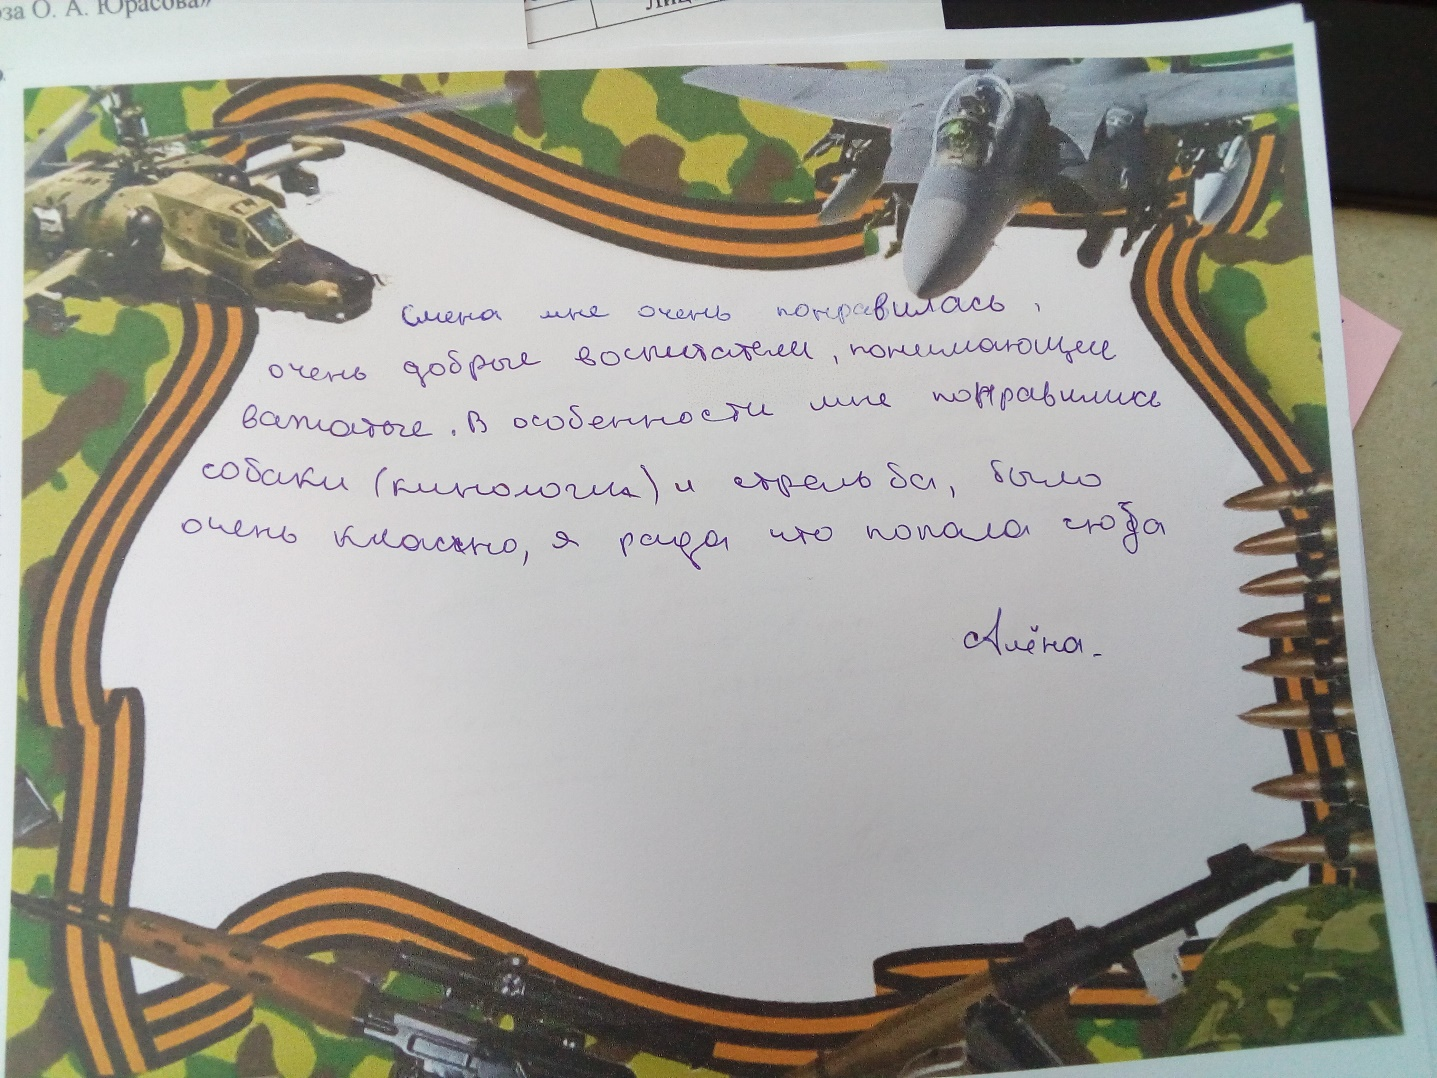 за О. А. Юрасова"
Смена мне очень понравилась,
очень добрые воспитатели, понимающие
важатые. В особенности мне понравились
собаки (кинологи) и стрельба, было
очень классно, я рада что попала сюда
Алёна.